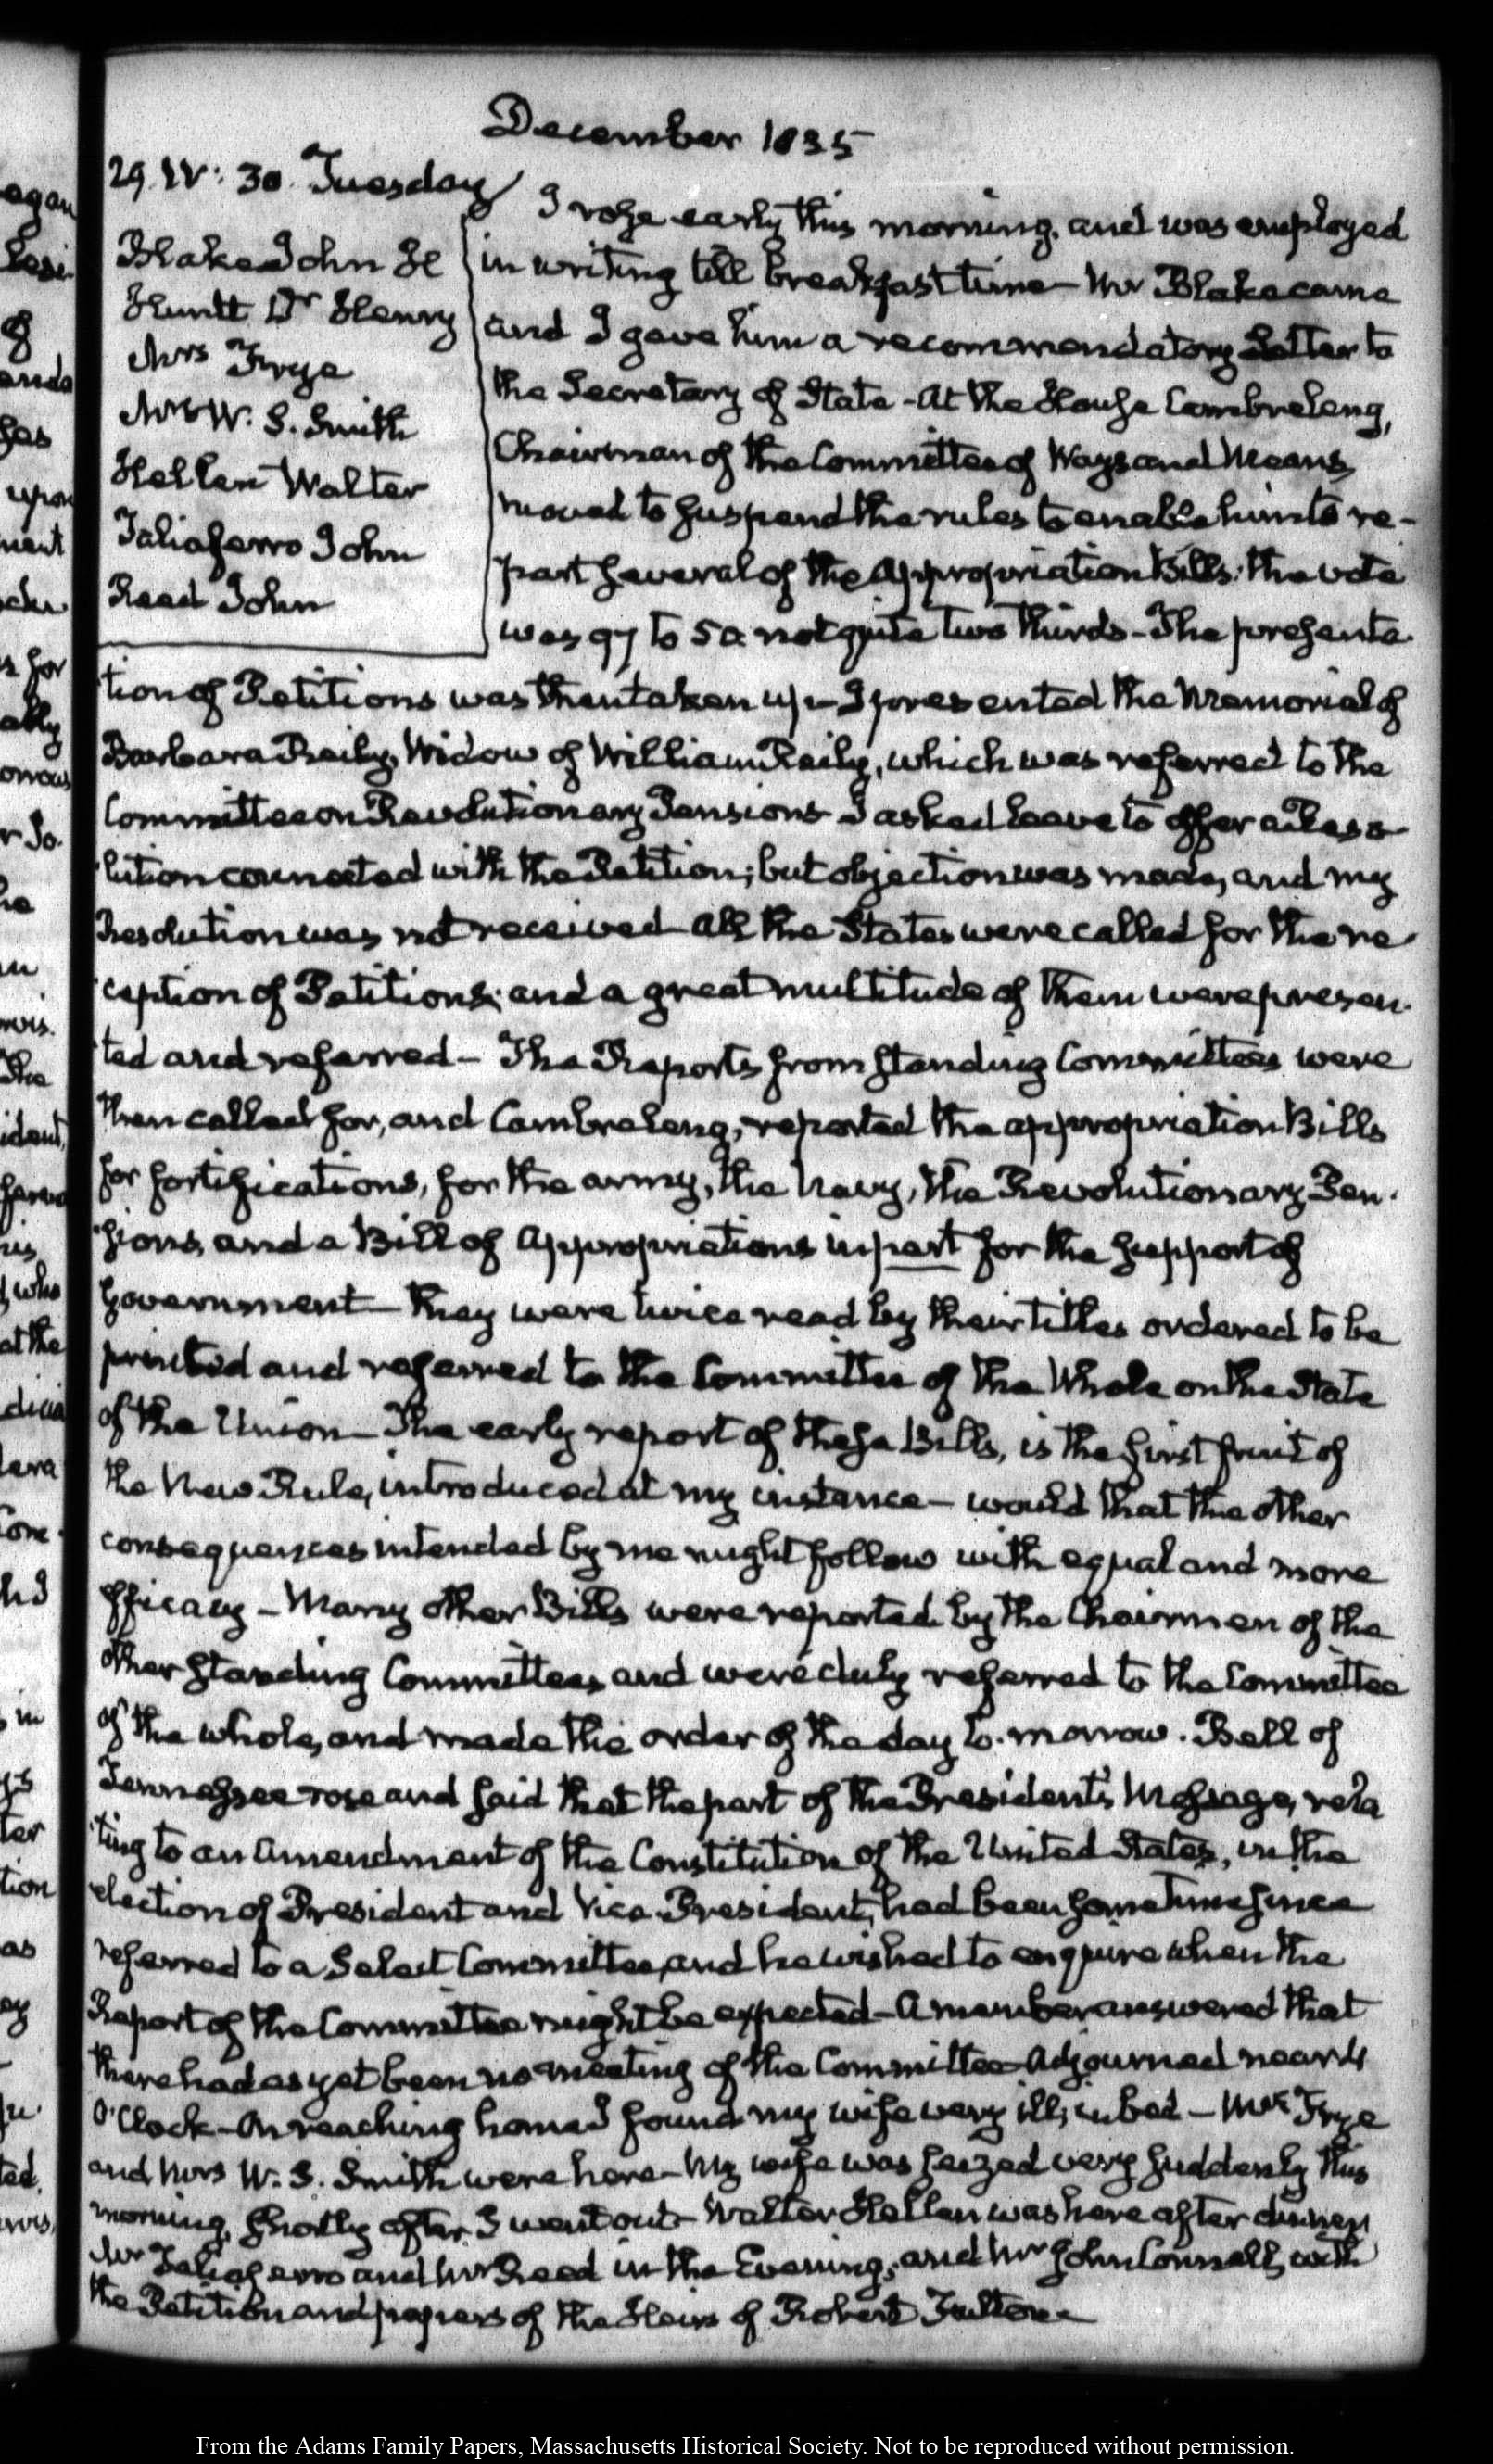 December 1835
29. IV: 30. Tuesday
Blake John H
Huntt Dr Henry
Mrs Frye
Mrs W. S. Smith
Hellen Walter
Taliaferro John
Reed John
I rose early this morning, and was employed
in writing till breakfast time — Mr Blake came
and I gave him a recommendatory Letter to
the Secretary of State — At the House Cambreleng,
Chairman of the Committee of Ways and Means,
moved to suspend the rules to enable him to re-
port several of the Appropriation Bills: the vote
was 97 to 52 not quite two thirds — The presenta-
tion of Petitions was then taken up — I presented the Memorial of
Barbara Reily, Widow of William Reily, which was referred to the
Committee on Revolutionary Pensions — I asked leave to offer a Reso-
lution connected with the Petition; but objection was made, and my
Resolution was not received — All the States were called for the re-
ception of Petitions; and a great multitude of them were presen-
ted and referred — The Reports from standing Committees were
then called for, and Cambreleng, reported the appropriation Bills
for fortifications, for the army, the Navy, the Revolutionary Pen-
sions, and a Bill of Appropriations in part for the support of
Government — They were twice read by their titles ordered to be
printed and referred to the Committee of the Whole on the State
of the Union — The early report of these Bills, is the first fruit of
the New Rule, introduced at my instance — would that the other
consequences intended by me might follow with equal and more
efficacy — Many other Bills were reported by the Chairmen of the
other standing Committees, and were duly referred to the Committee
of the whole, and made the order of the day to-morrow. Bell of
Tennessee rose and said that the part of the President's Message, rela
ting to an Amendment of the Constitution of the United States, in the
election of President and Vice-President, had been some time since
referred to a Select Committee, and he wished to enquire when the
Report of the Committee might be expected — A member answered that
there had as yet been no meeting of the Committee — Adjourned near 4
O'Clock — On reaching home I found my wife very ill, in bed — Mrs Frye
and Mrs W. S. Smith were here — My wife was seized very suddenly this
morning, shortly after I went out — Walter Hellen was here after dinner
Mr Taliaferro and Mr Reed in the Evening, and Mr John Connell, with
the Petition and papers of the Heirs of Robert Fulton —
From the Adams Family Papers, Massachusetts Historical Society. Not to be reproduced without permission.